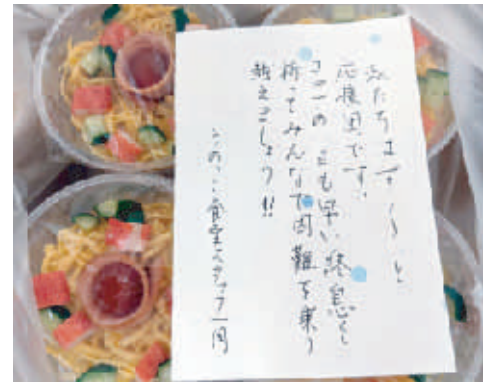 私たちはず〜っと
応援団です。
コロナの 日も早い終息を
祈ってみんなで困難を乗り
越えましょう!!
食堂スタッフ一同